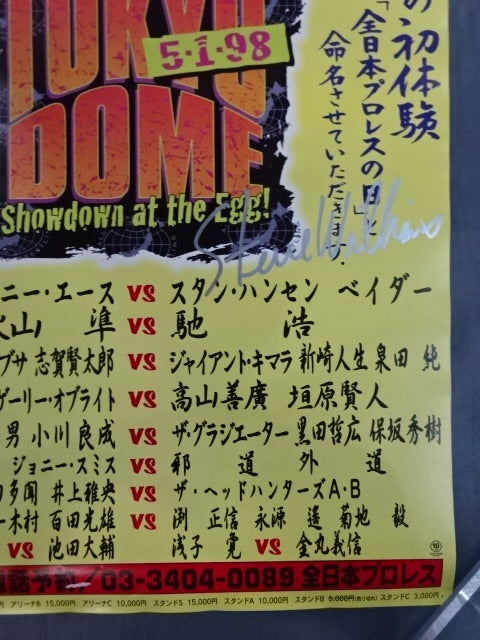 TOKYO
5·1·98
DOME
Showdown at the Egg!
の初体験
「全日本プロレスの日」と
命名させていただきます。
Steve Williams
ニー・エース VS スタン・ハンセン ベイダー
山 準 VS 馳 浩
ブサ 志賀賢太郎 VS ジャイアント・キマラ 新崎人生 泉田 純
ゲーリー・オブライト VS 高山善廣 垣原賢人
男 小川良成 VS ザ・グラジエーター 黒田哲広 保坂秀樹
ジョニー・スミス VS 邪道 外道
多聞 井上雅央 VS ザ・ヘッドハンターズA・B
木村 百田光雄 VS 渕 正信 永源 遥 菊地 毅
VS 池田大輔 浅子 覚 VS 金丸義信
電話予約/ 03-3404-0089 全日本プロレス
円 アリーナB 15,000円 アリーナC 10,000円 スタンドS 15,000円 スタンドA 10,000円 スタンドB 5,000円(売り切れ) スタンドC 3,000円